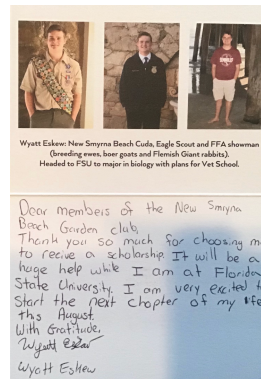 Wyatt Eskew: New Smyrna Beach Cuda, Eagle Scout and FFA showman
(breeding ewes, boer goats and Flemish Giant rabbits).
Headed to FSU to major in biology with plans for Vet School.
Dear members of the New Smyrna
Beach Garden club,
Thank you so much for choosing m
to recive a scholarship. It will be a
huge help while I am at Florida
State University. I am very excited t
Start the next chapter of my life
this August.
With Gratitude,
Wyatt Eskew
Wyatt Eskew